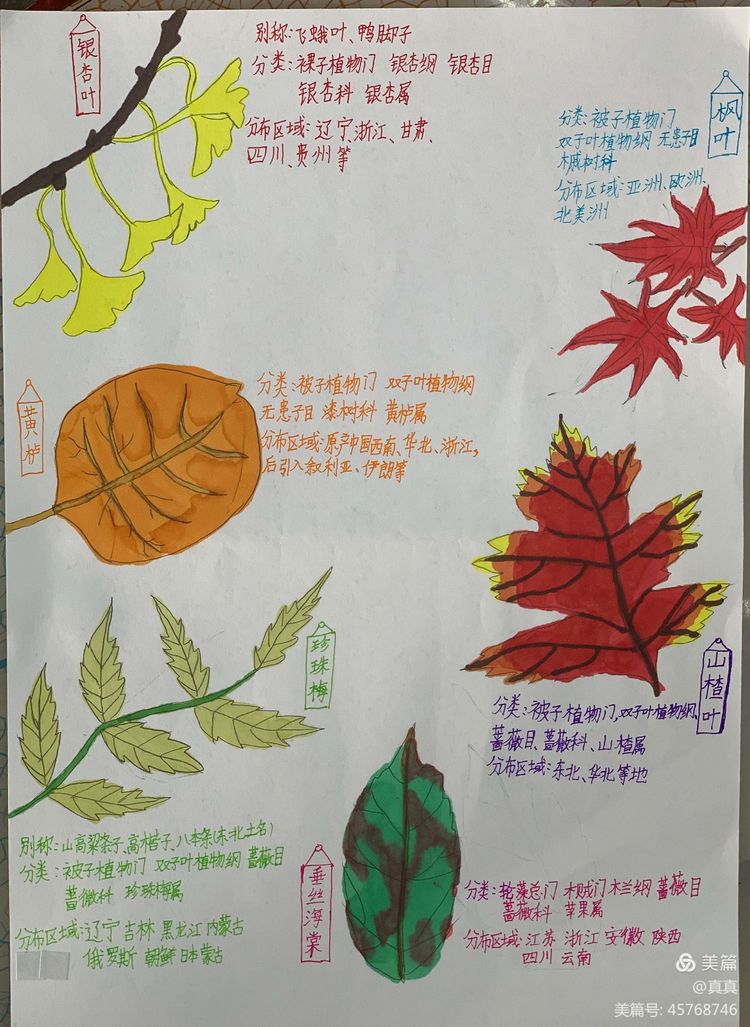 银杏叶
别称:飞蛾叶、鸭脚子
分类:裸子植物门 银杏纲 银杏目
银杏科 银杏属
分布区域:辽宁、浙江、甘肃、
四川、贵州等
枫叶
分类:被子植物门
双子叶植物纲 无患子目
槭树科
分布区域:亚洲、欧洲、
北美洲
黄栌
分类:被子植物门 双子叶植物纲
无患子目 漆树科 黄栌属
分布区域:原产中国西南、华北、浙江,
后引入叙利亚、伊朗等
山楂叶
分类:被子植物门,双子叶植物纲、
蔷薇目、蔷薇科、山楂属
分布区域:东北、华北等地
珍珠梅
别称:山高粱条子,高楷子、八本条(东北土名)
分类:被子植物门 双子叶植物纲 蔷薇目
蔷薇科 珍珠梅属
分布区域:辽宁 吉林 黑龙江 内蒙古
俄罗斯 朝鲜 日本 蒙古
垂丝海棠
分类:轮藻总门 木贼门 木兰纲 蔷薇目
蔷薇科 苹果属
分布区域:江苏 浙江 安徽 陕西
四川 云南
美篇
@真真
美篇号: 45768746